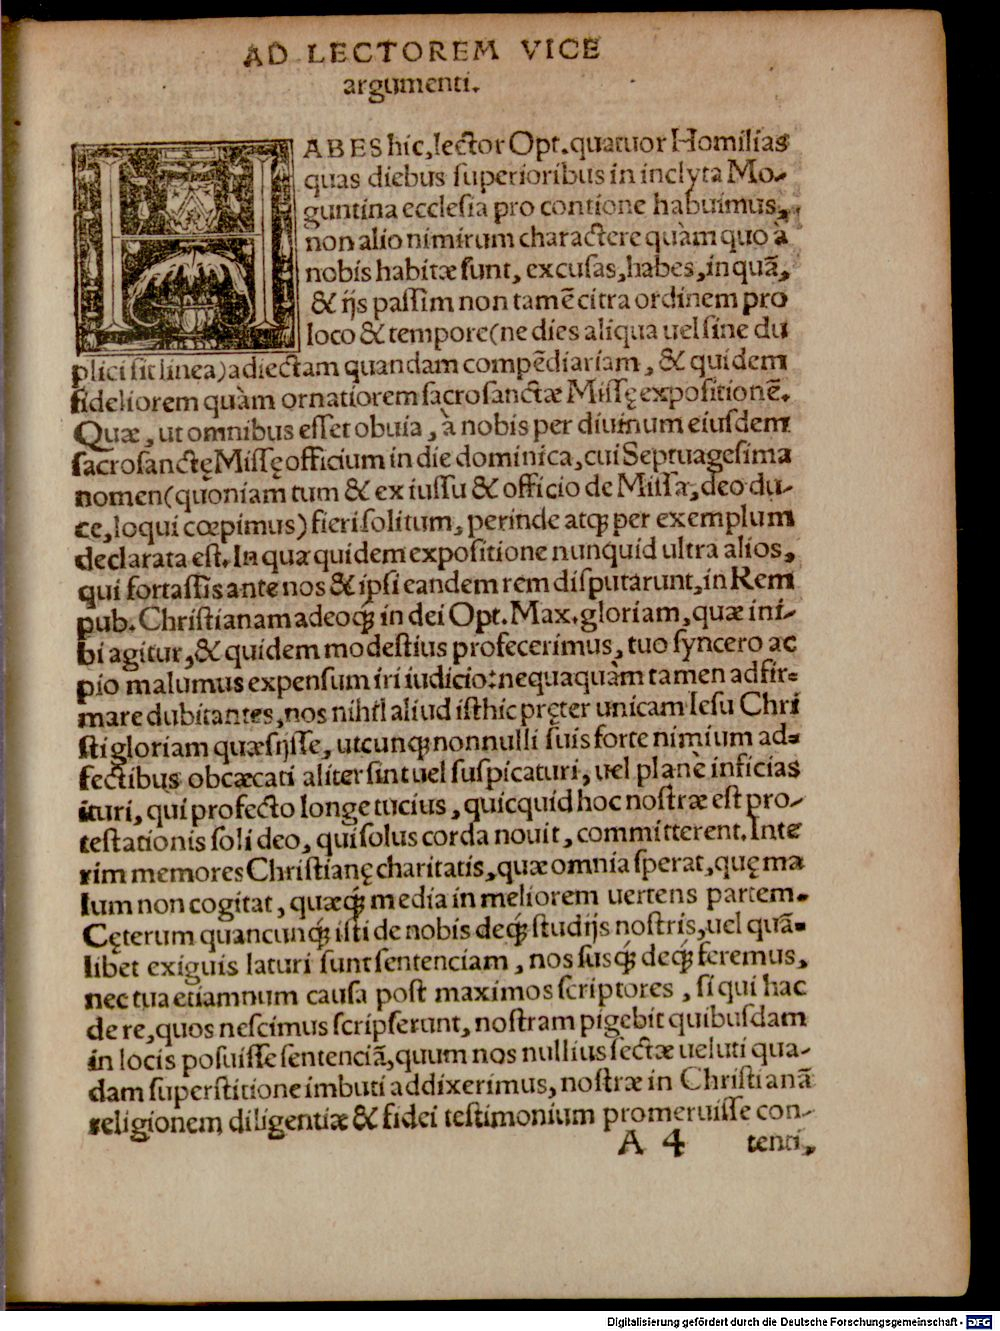 AD LECTOREM VICE
argumenti.
HABES hic, lector Opt. quatuor Homilias
quas diebus superioribus in inclyta Mo-
guntina ecclesia pro contione habuimus,
non alio nimirum charactere quàm quo à
nobis habitæ sunt, excusas, habes, inquā,
& ijs passim non tamē citra ordinem pro
loco & tempore (ne dies aliqua uel sine du
plici sit linea) adiectam quandam compēdiariam, & quidem
fideliorem quàm ornatiorem sacrosanctæ Missę expositionē.
Quæ, ut omnibus esset obuia, à nobis per diuinum eiusdem
sacrosanctę Missę officium in die dominica, cui Septuagesima
nomen (quoniam tum & ex iussu & officio de Missa, deo du-
ce, loqui cœpimus) fieri solitum, perinde atq́ꝫ per exemplum
declarata est. In qua quidem expositione nunquid ultra alios,
qui fortassis ante nos & ipsi eandem rem disputarunt, in Rem
pub. Christianam adeoq́ꝫ in dei Opt. Max. gloriam, quæ ini-
bi agitur, & quidem modestius profecerimus, tuo syncero ac
pio malumus expensum iri iudicio: nequaquàm tamen adfir-
mare dubitantes, nos nihil aliud isthic pręter unicam Iesu Chri
sti gloriam quæsijsse, utcunqꝫ nonnulli suis forte nimium ad-
fectibus obcæcati aliter sint uel suspicaturi, uel planè inficias
ituri, qui profecto longe tucius, quicquid hoc nostræ est pro-
testationis soli deo, qui solus corda nouit, committerent. Inte
rim memores Christianę charitatis, quæ omnia sperat, quę ma
lum non cogitat, quæq́ꝫ media in meliorem uertens partem.
Cęterum quancunq́ꝫ isti de nobis deq́ꝫ studijs nostris, uel quā-
libet exiguis laturi sunt sentenciam, nos susq́ꝫ deq́ꝫ feremus,
nec tua etiamnum causa post maximos scriptores, si qui hac
de re, quos nescimus scripserunt, nostram pigebit quibusdam
in locis posuisse sentenciā, quum nos nullius sectæ ueluti qua-
dam superstitione imbuti addixerimus, nostræ in Christianā
religionem diligentiæ & fidei testimonium promeruisse con-
A 4 tenti,
Digitalisierung gefördert durch die Deutsche Forschungsgemeinschaft - DFG